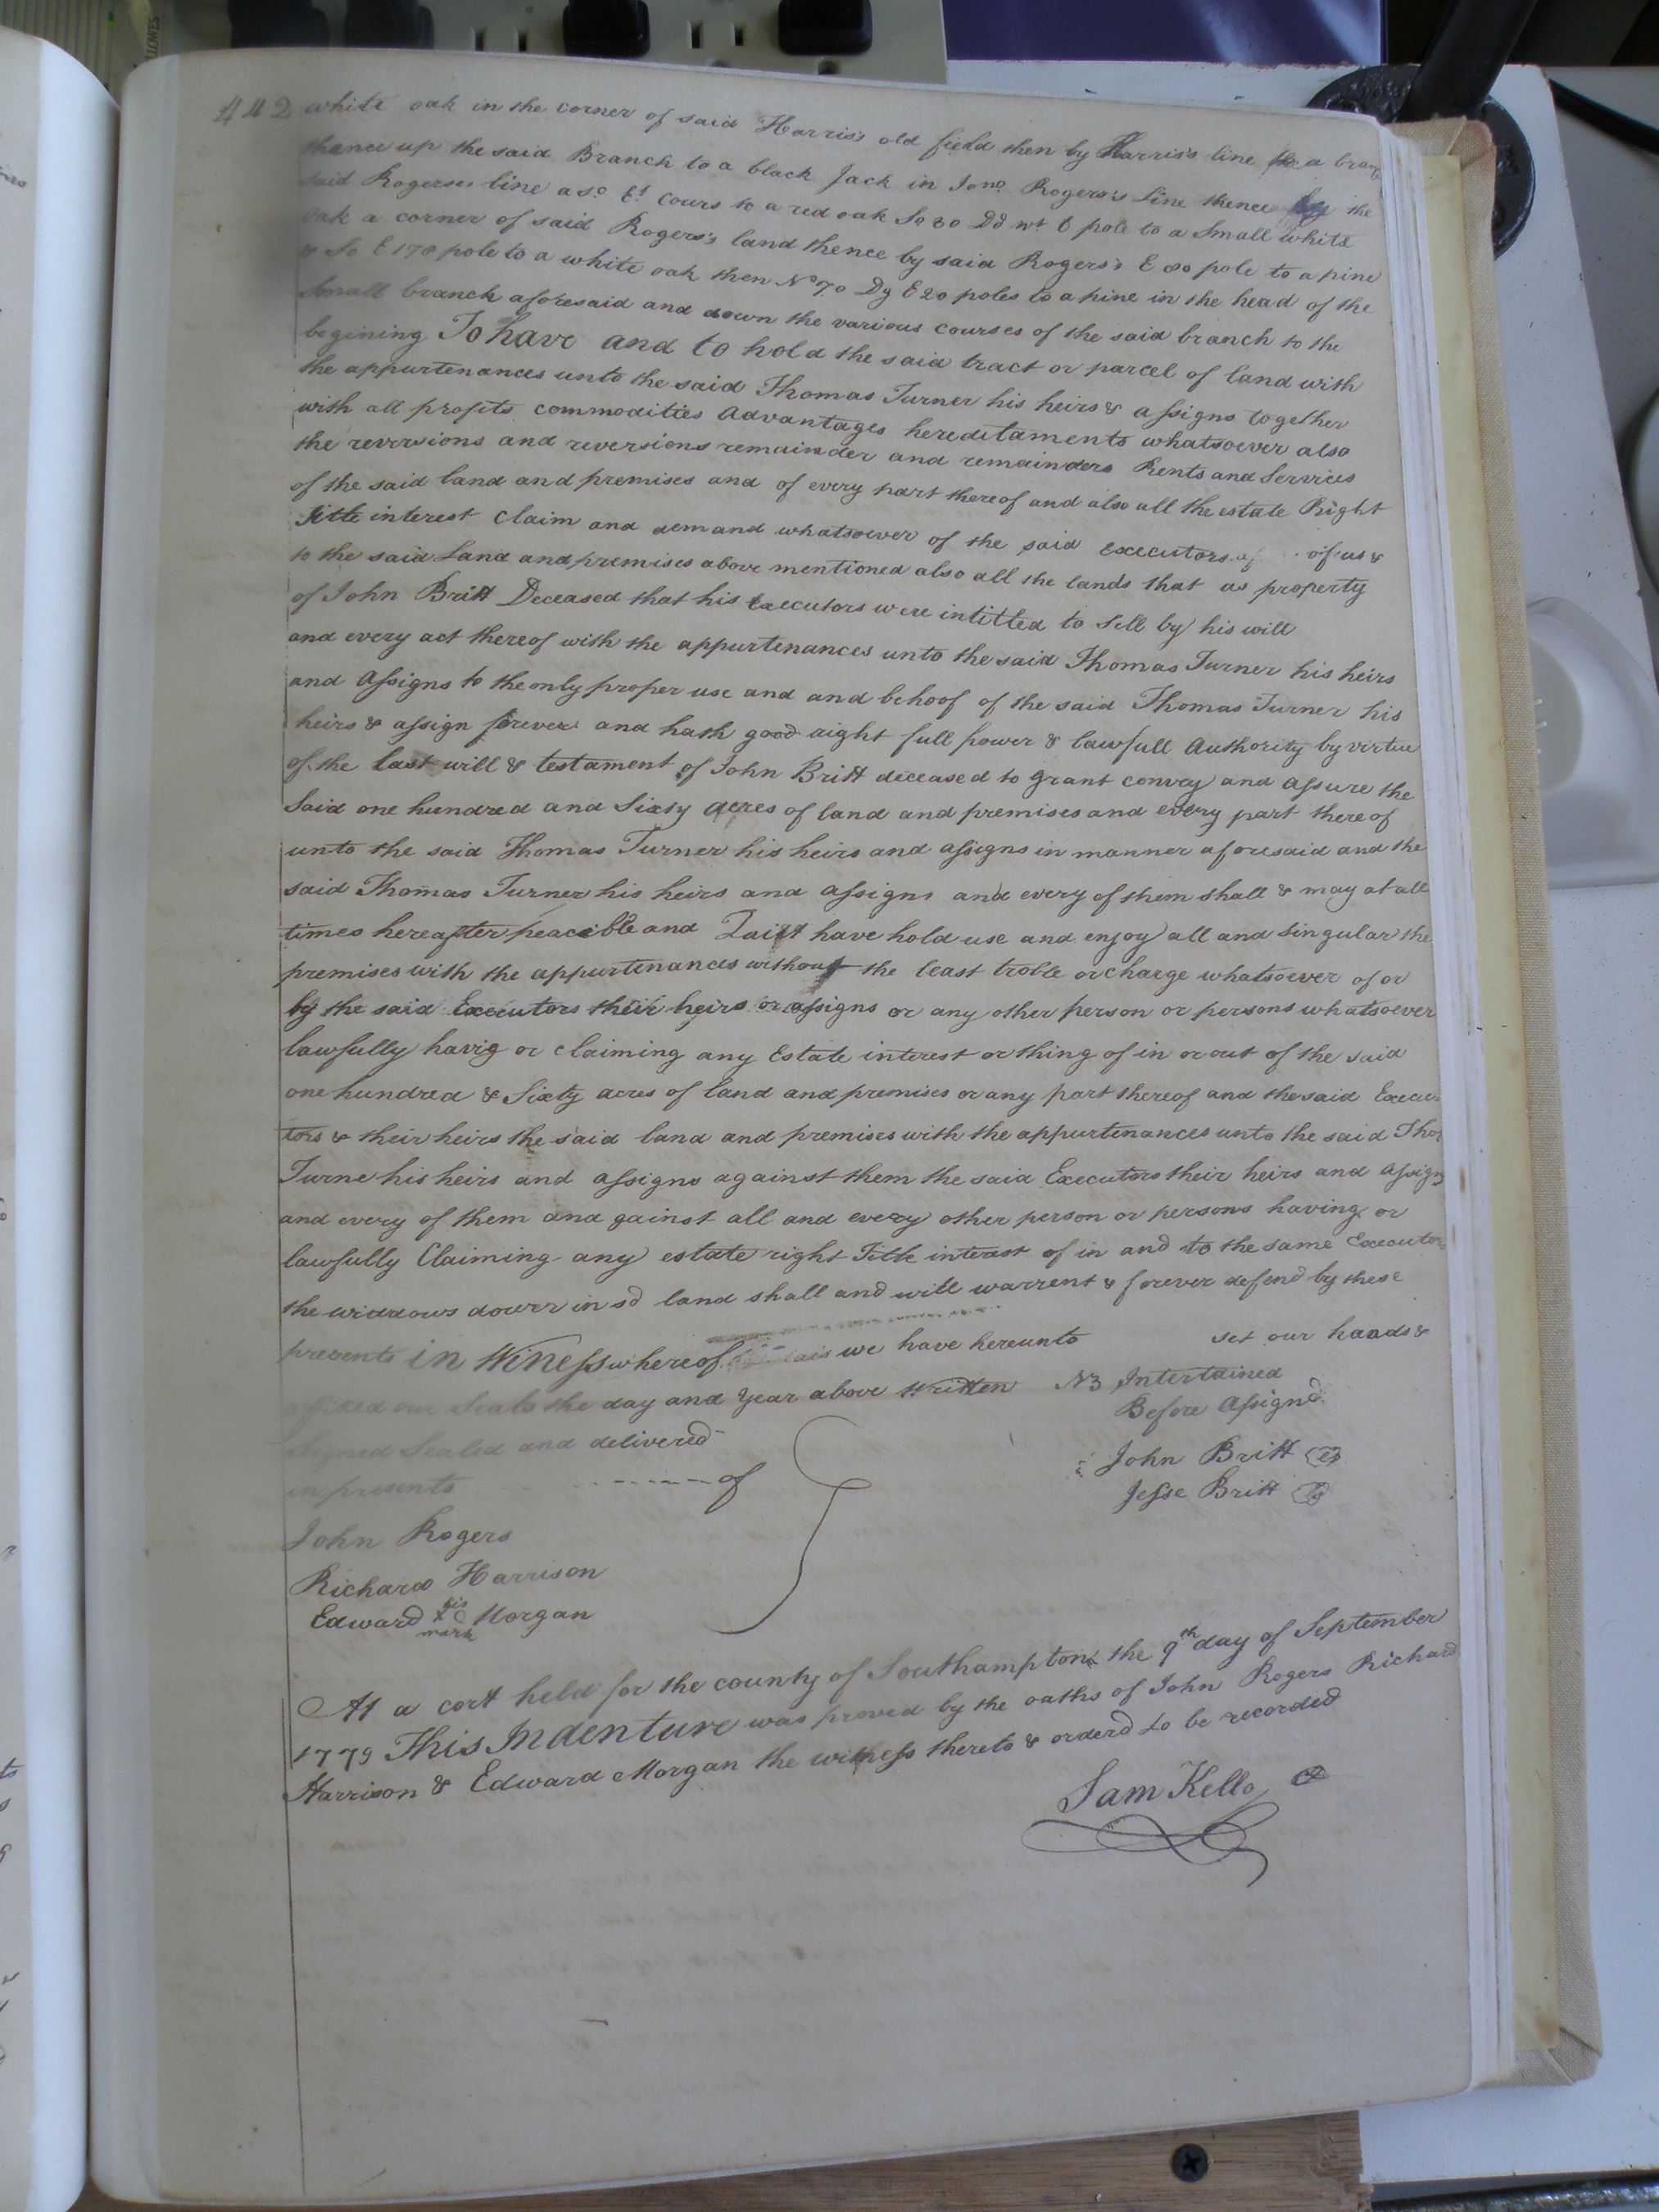 442 white oak in the corner of said Harris's old field then by Harris's line to a bran
thence up the said Branch to a black Jack in Jono. Rogers's line thence by the
said Rogerses line a so. Et. cours to a red oak So 20 Dd wt 6 pole to a Small white
oak a corner of said Rogers's land thence by said Rogers's E 80 pole to a pine
& So E 178 pole to a white oak then No 70 Dg E 20 poles to a pine in the head of the
Small branch aforesaid and down the various courses of the said branch to the
begining To have and to hold the said tract or parcel of land with
the appurtenances unto the said Thomas Turner his heirs & assigns together
with all profits commodities Advantages hereditaments whatsoever also
the reversions and reversions remainder and remainders Rents and Services
of the said land and premises and of every part thereof and also all the estate Right
Title interest Claim and demand whatsoever of the said executors of us &
to the said Land and premises above mentioned also all the lands that as property
of John Britt Deceased that his Executors were intitled to Sell by his will
and every act thereof with the appurtenances unto the said Thomas Turner his heirs
and Assigns to the only proper use and and behoof of the said Thomas Turner his
heirs & assign forever and hath good right full power & lawfull Authority by virtue
of the last will & testament of John Britt deceased to grant convey and assure the
Said one hundred and Sixty acres of land and premises and every part there of
unto the said Thomas Turner his heirs and assigns in manner aforesaid and the
said Thomas Turner his heirs and assigns and every of them shall & may at all
times hereafter peacible and Qaiet have hold use and enjoy all and Singular the
premises with the appurtenances without the least troble or charge whatsoever of or
by the said Executors their heirs or assigns or any other person or persons whatsoever
lawfully havig or claiming any Estate interest or thing of in or out of the said
one hundred & Sixty acres of land and premises or any part thereof and the said Execu
tors & their heirs the said land and premises with the appurtenances unto the said Tho
Turne his heirs and assigns against them the said Executors their heirs and Assigns
and every of them and gainst all and every other person or persons having or
lawfully Claiming any estate right Title interest of in and to the same Executors
the widdows dower in sd land shall and will warrent & forever defend by these
presents in Winess whereof we have hereunto set our hands &
affixed our Seals the day and Year above Written NB Intertained
Before Assignd
Signed Sealed and delivered
in presents of
John Britt
Jesse Britt
John Rogers
Richard Harrison
Edward his mark Morgan
At a cort held for the county of Southampton the 9th day of September
1779 This Indenture was proved by the oaths of John Rogers Richard
Harrison & Edward Morgan the witness thereto & orderd to be recorded
Sam Kello